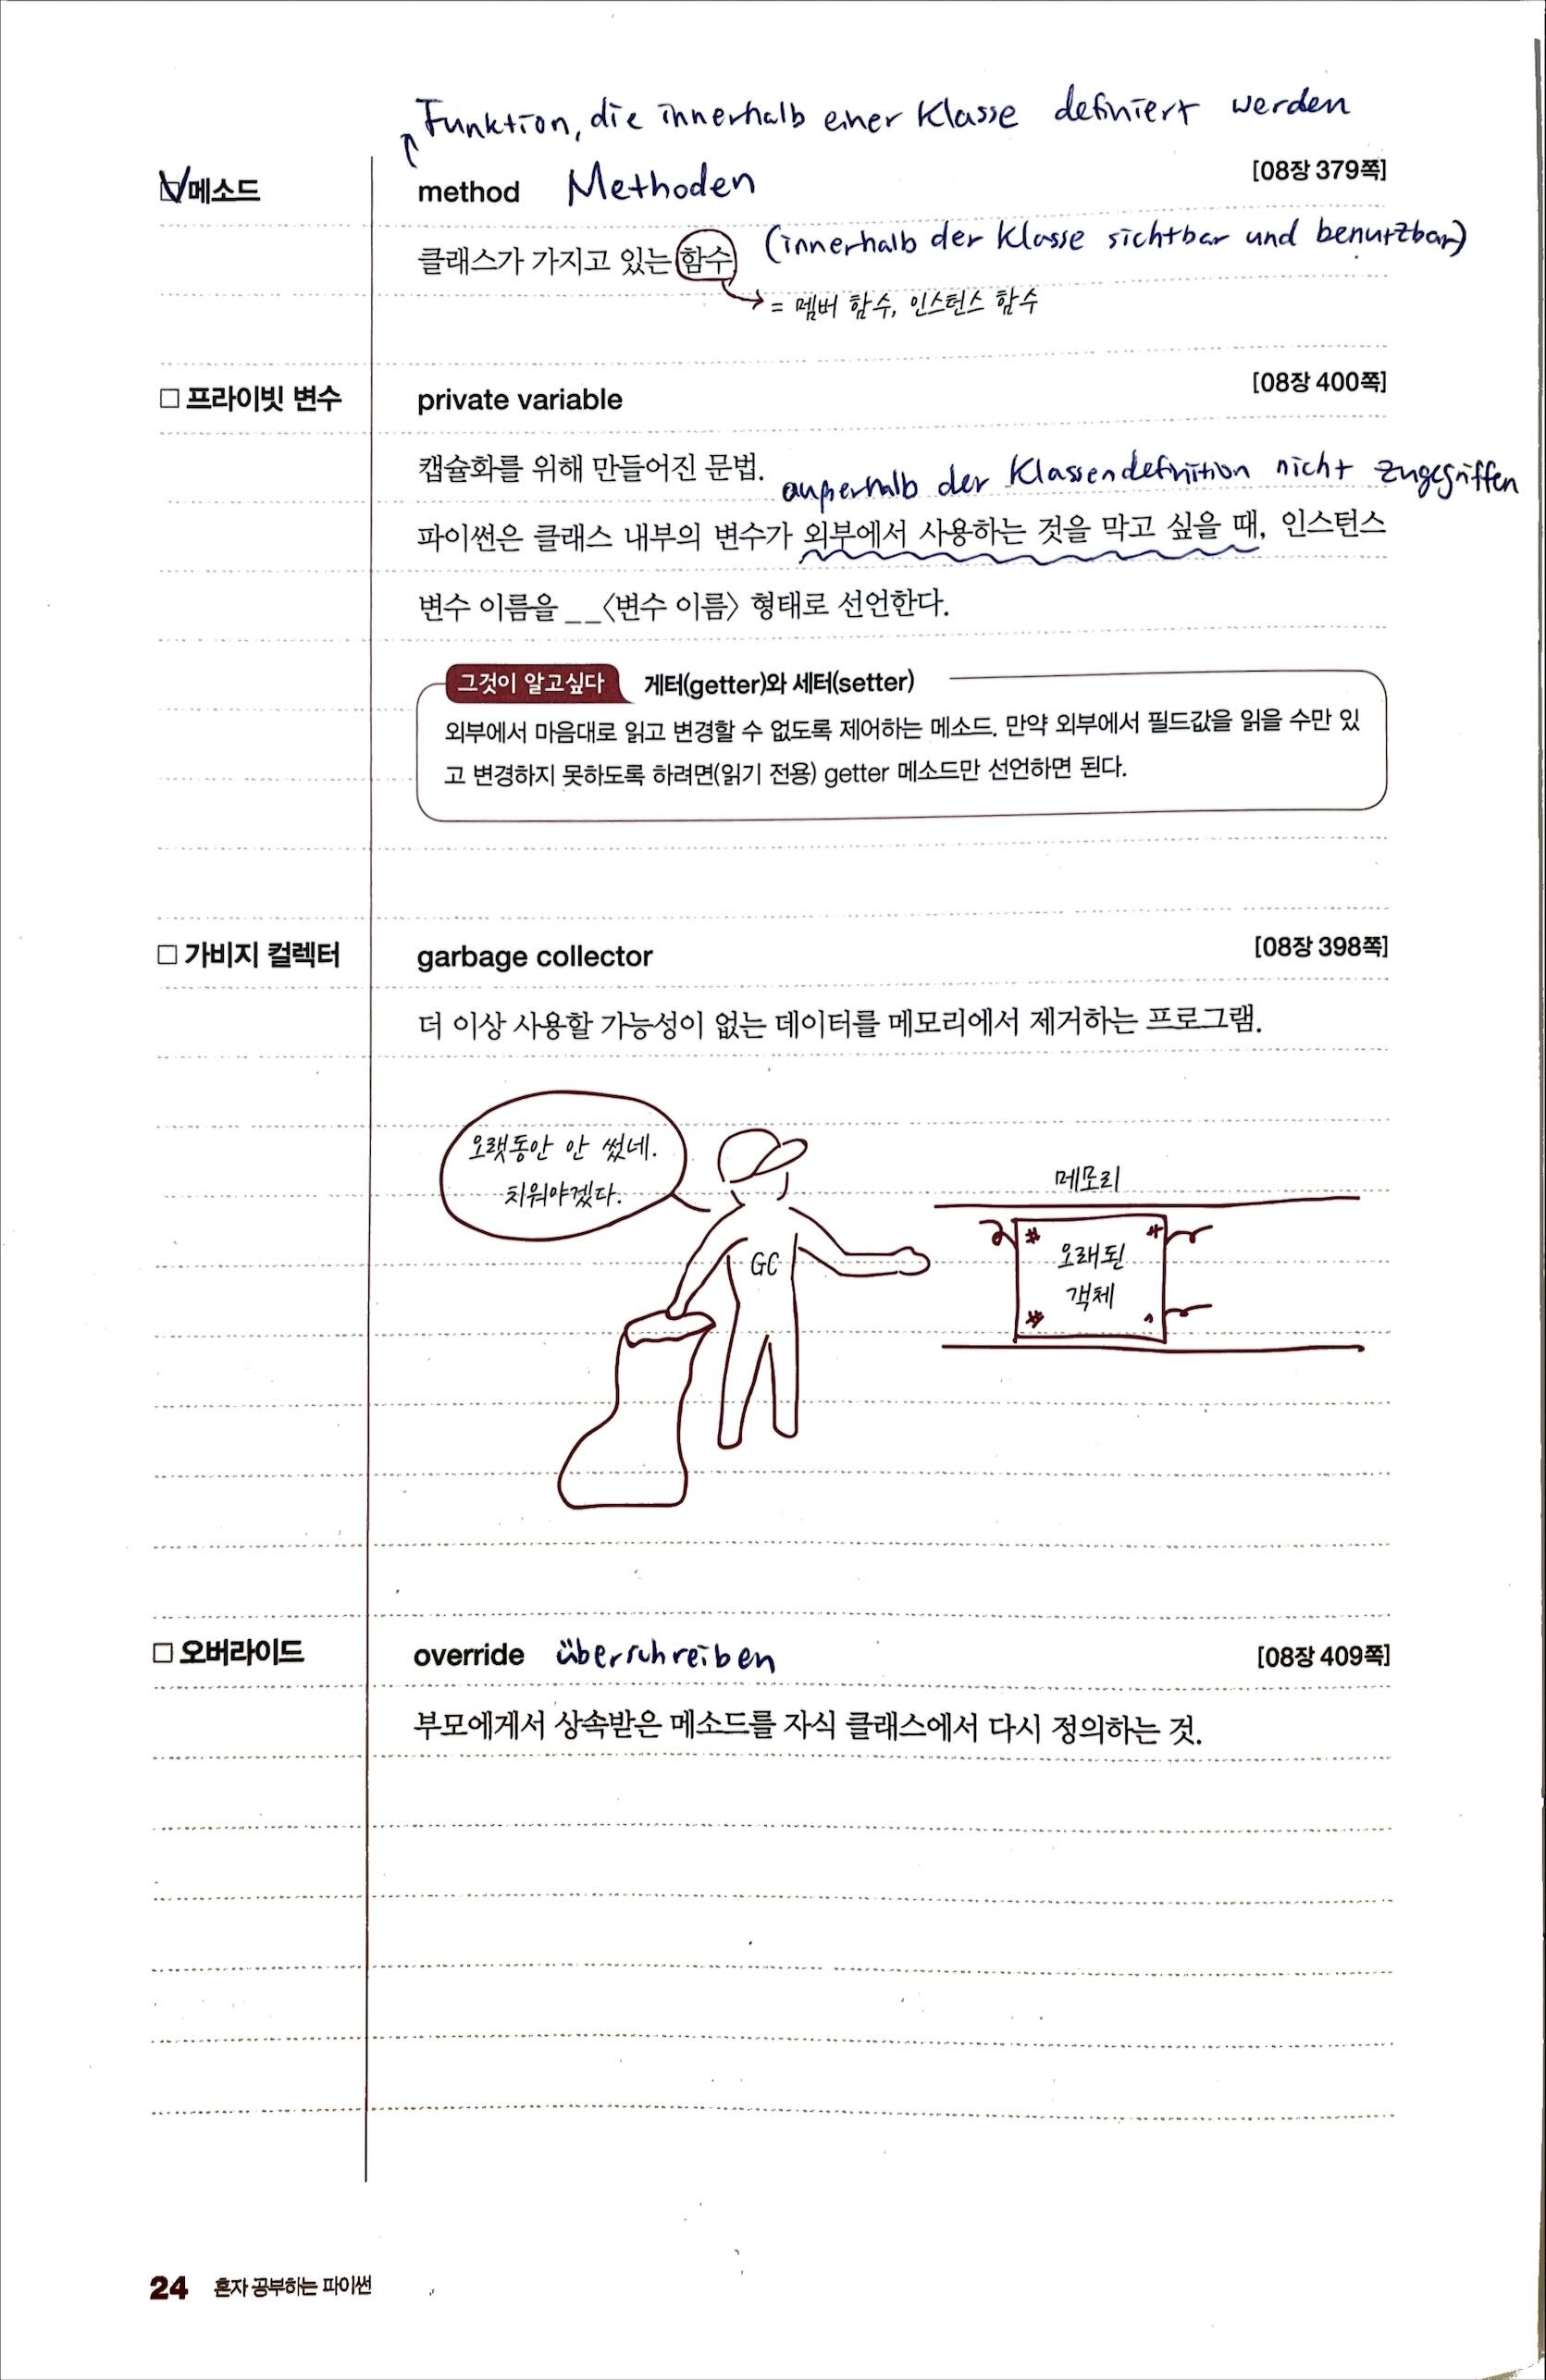 Funktion, die innerhalb einer Klasse definiert werden
메소드
method Methoden [08장 379쪽]
클래스가 가지고 있는 함수 (innerhalb der Klasse sichtbar und benutzbar)
= 멤버 함수, 인스턴스 함수
□ 프라이빗 변수
private variable [08장 400쪽]
캡슐화를 위해 만들어진 문법.
außerhalb der Klassendefinition nicht zugegriffen
파이썬은 클래스 내부의 변수가 외부에서 사용하는 것을 막고 싶을 때, 인스턴스
변수 이름을 __〈변수 이름〉 형태로 선언한다.
그것이 알고싶다 게터(getter)와 세터(setter)
외부에서 마음대로 읽고 변경할 수 없도록 제어하는 메소드. 만약 외부에서 필드값을 읽을 수만 있
고 변경하지 못하도록 하려면(읽기 전용) getter 메소드만 선언하면 된다.
□ 가비지 컬렉터
garbage collector [08장 398쪽]
더 이상 사용할 가능성이 없는 데이터를 메모리에서 제거하는 프로그램.
오랫동안 안 썼네.
치워야겠다.
GC
메모리
오래된
객체
□ 오버라이드
override überschreiben [08장 409쪽]
부모에게서 상속받은 메소드를 자식 클래스에서 다시 정의하는 것.
24 혼자 공부하는 파이썬